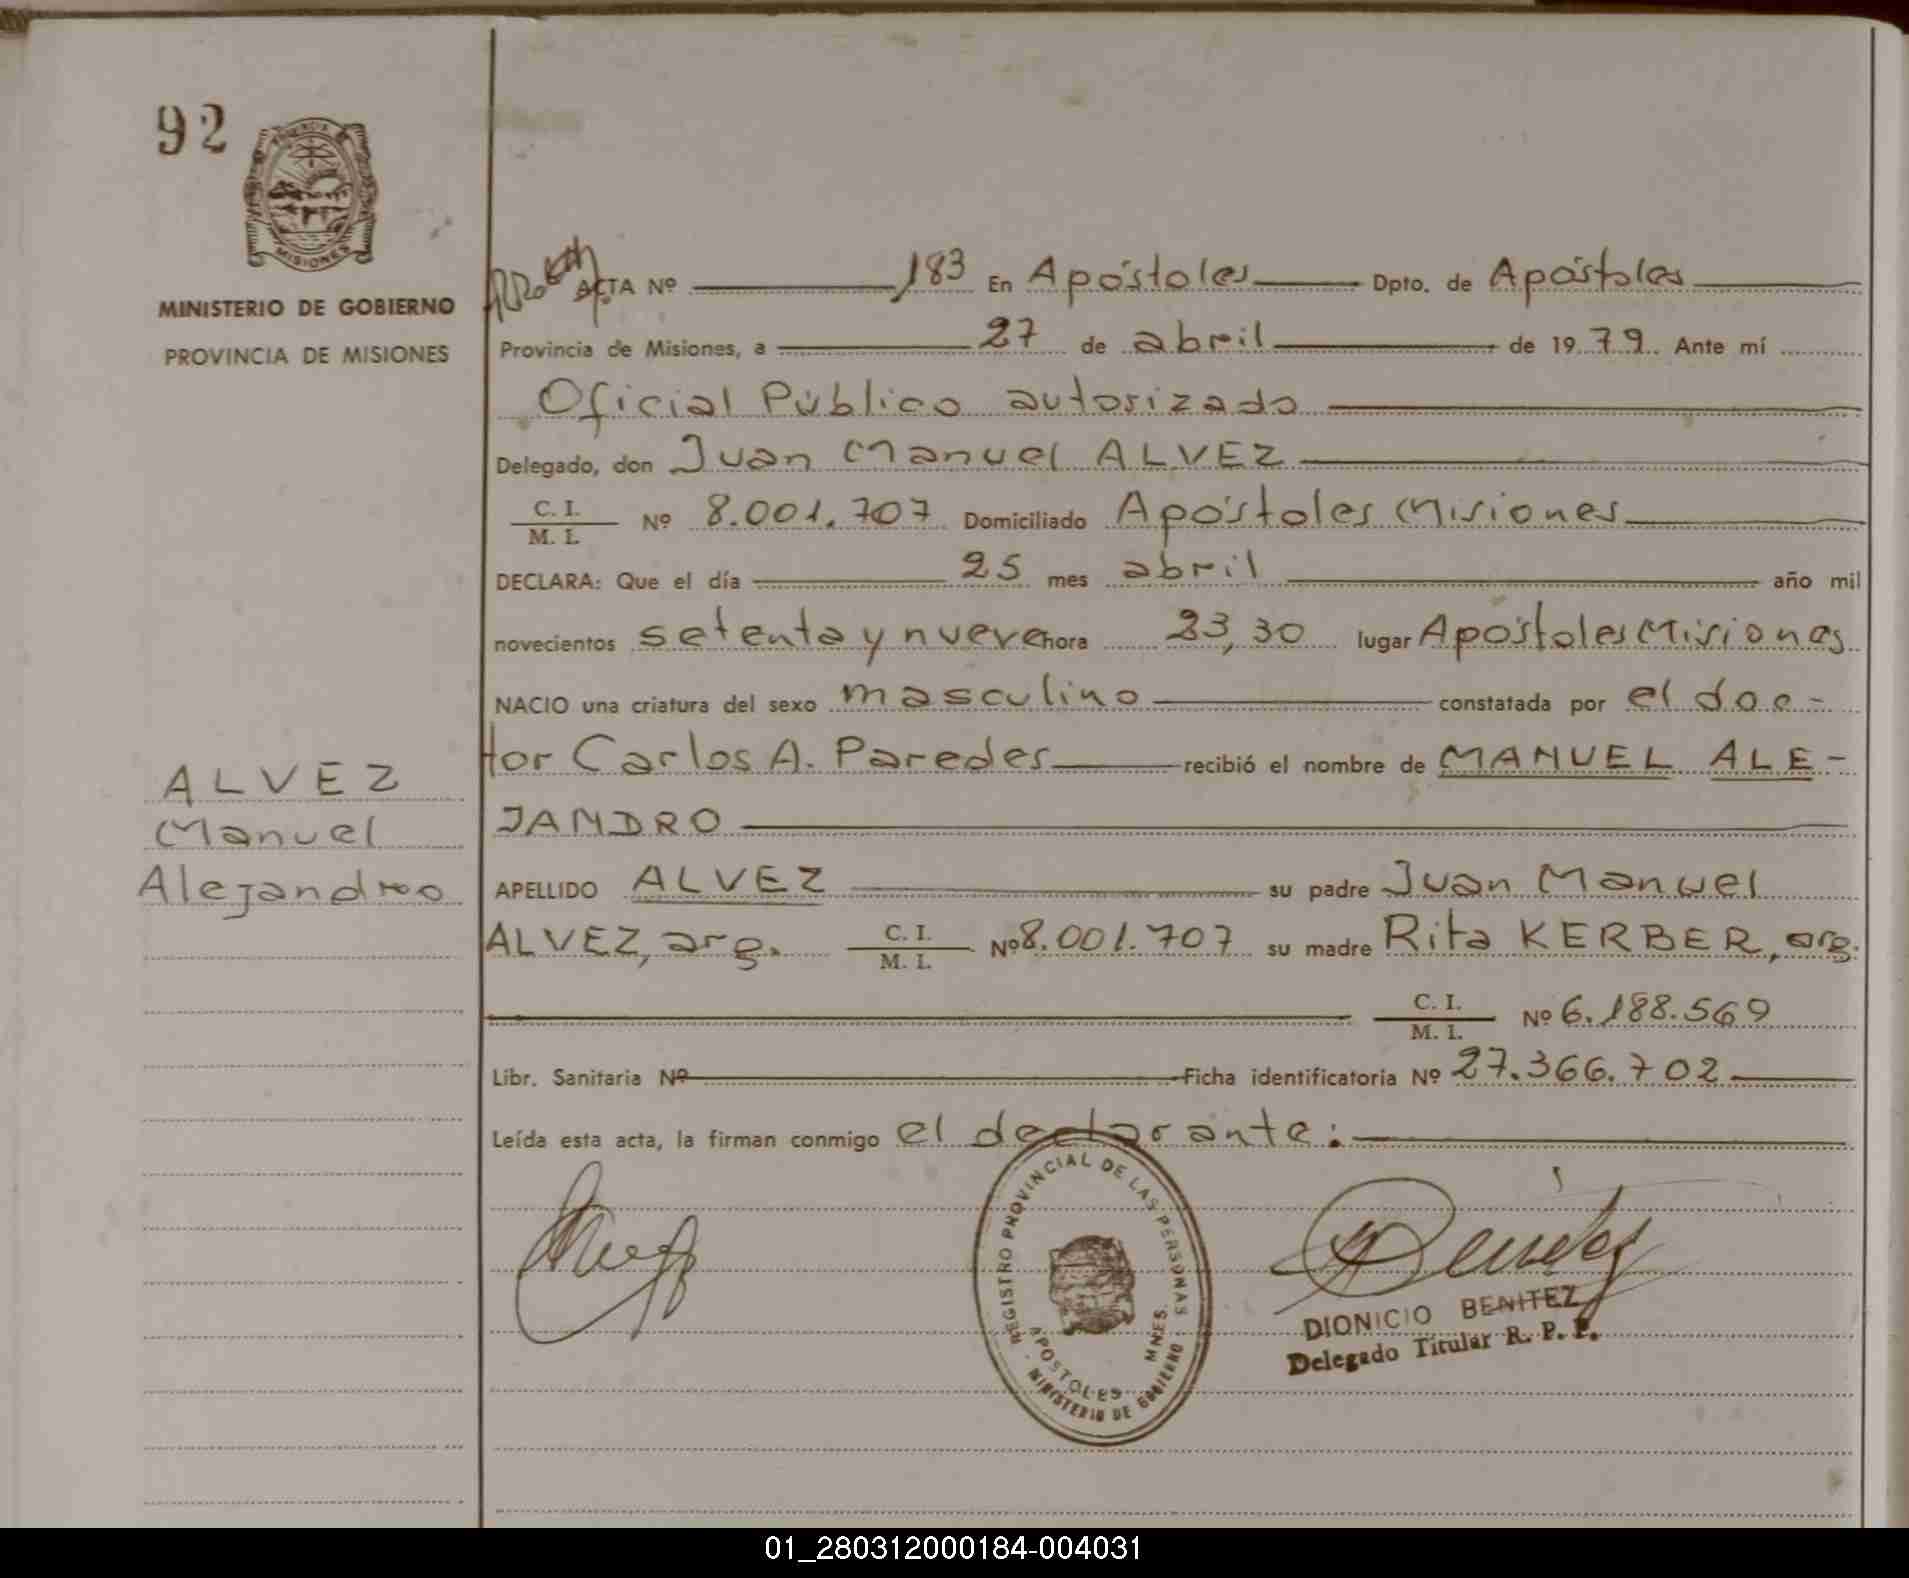 92
PROVINCIA DE
MISIONES
MINISTERIO DE GOBIERNO
PROVINCIA DE MISIONES
ACTA Nº 183 En Apóstoles Dpto. de Apóstoles
Provincia de Misiones, a 27 de abril de 1979. Ante mí
Oficial Público autorizado
Delegado, don Juan Manuel ALVEZ
C. I.
M. I. Nº 8.001.707 Domiciliado Apóstoles Misiones
DECLARA: Que el día 25 mes abril año mil
novecientos setenta y nueve hora 23,30 lugar Apóstoles Misiones
NACIO una criatura del sexo masculino constatada por el doc-
tor Carlos A. Paredes recibió el nombre de MANUEL ALE-
JANDRO
ALVEZ
Manuel
Alejandro
APELLIDO ALVEZ su padre Juan Manuel
ALVEZ, arg. C. I.
M. I. Nº 8.001.707 su madre Rita KERBER, arg.
C. I.
M. I. Nº 6.188.569
Libr. Sanitaria Nº Ficha identificatoria Nº 27.366.702
Leída esta acta, la firman conmigo el declarante:
REGISTRO PROVINCIAL DE LAS PERSONAS
APOSTOLES MNES.
MINISTERIO DE GOBIERNO
DIONICIO BENITEZ
Delegado Titular R. P. P.
01_280312000184-004031